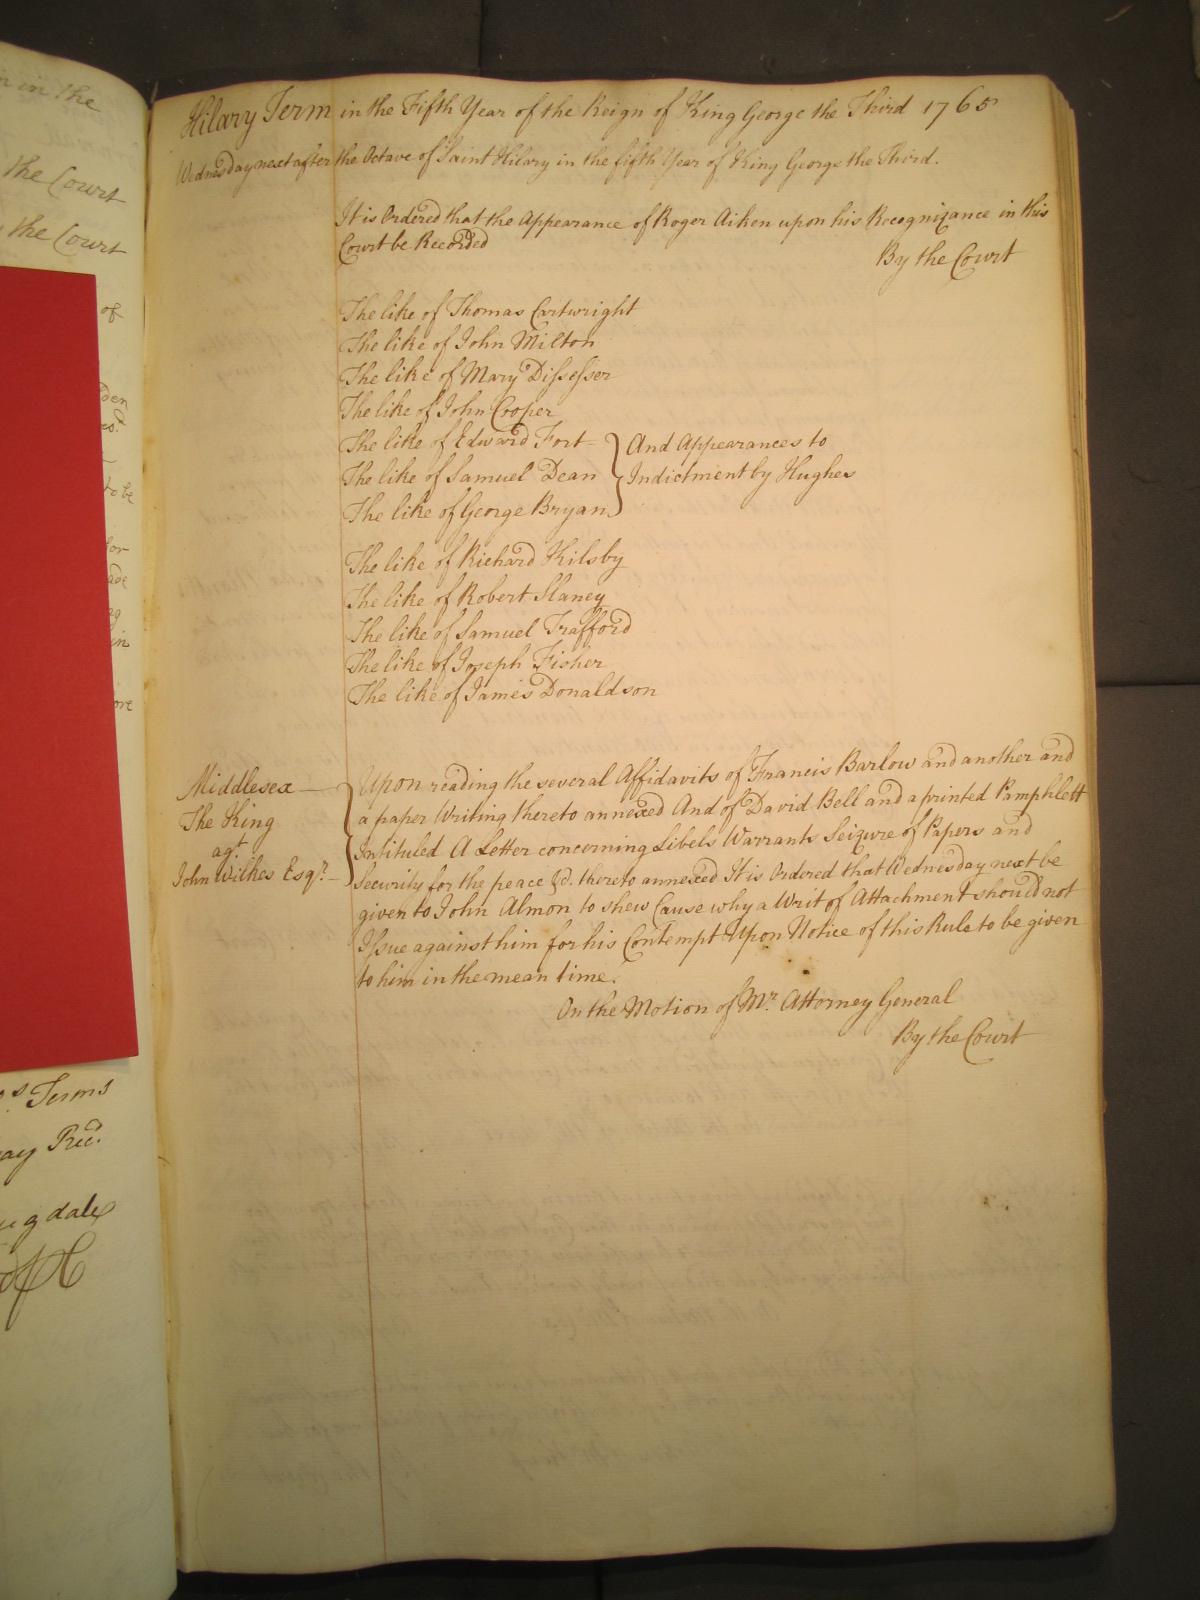 n in the
the Court
the Court
of
den
to be
for
ade
in
ore
s Terms
ay Rec.d
ugdale
of C
Hilary Term in the Fifth Year of the Reign of King George the Third 1765
Wednesday next after the Octave of Saint Hilary in the fifth Year of King George the Third.
It is Ordered that the Appearance of Roger Aiken upon his Recognizance in this
Court be Recorded
By the Court
The like of Thomas Cartwright
The like of John Milton
The like of Mary Dissesser
The like of John Cooper
The like of Edward Fort
The like of Samuel Dean
The like of George Bryan
And Appearances to
Indictment by Hughes
The like of Richard Kilsby
The like of Robert Slaney
The like of Samuel Trafford
The like of Joseph Fisher
The like of James Donaldson
Middlesex
The King
ag.t
John Wilkes Esq.r
Upon reading the several Affidavits of Francis Barlow and another and
a paper Writing thereto annexed And of David Bell and a printed Pamphlett
Intituled A Letter concerning Libels Warrants Seizure of Papers and
Security for the peace &c. thereto annexed It is Ordered that Wednesday next be
given to John Almon to shew Cause why a Writ of Attachment should not
Issue against him for his Contempt Upon Notice of this Rule to be given
to him in the mean time.
On the Motion of Mr. Attorney General
By the Court